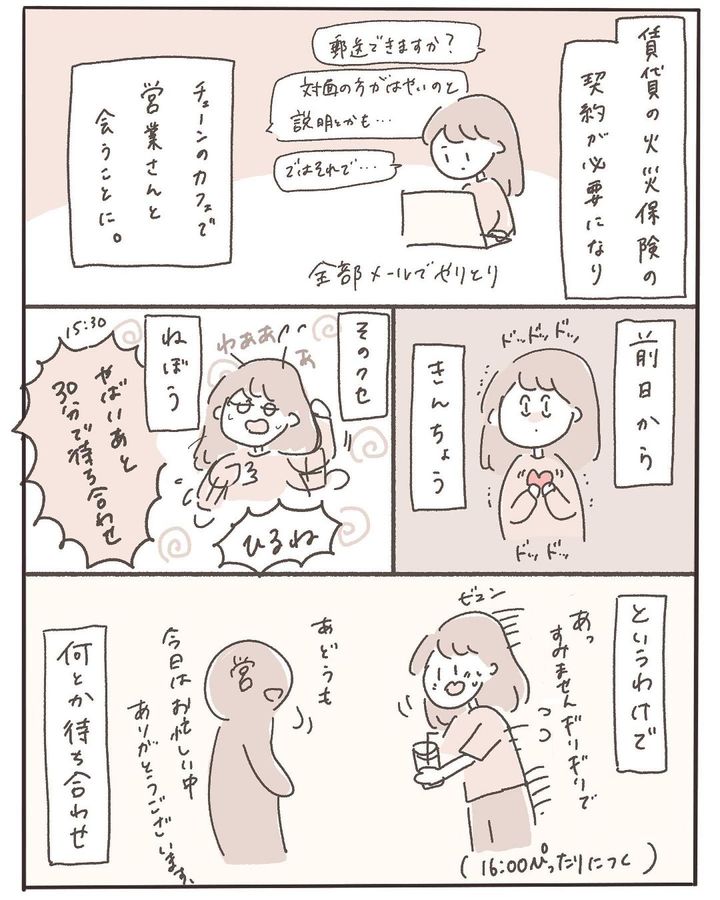 賃貸の火災保険の
契約が必要になり
郵送できますか？
対面の方がはやいのと
説明とかも…
ではそれで…
全部メールでやりとり
チェーンのカフェで
営業さんと
会うことに。
前日から
ドッドッドッ
ドッドッ
きんちょう
そのクセ
わああ
あ
ねぼう
ひるね
15:30
やばいあと
30分で待ち合わせ
というわけで
ビュン
あっ
すみませんギリギリで
(16:00ぴったりにつく)
あどうも
営
今日はお忙しい中
ありがとうございます、
何とか待ち合わせ